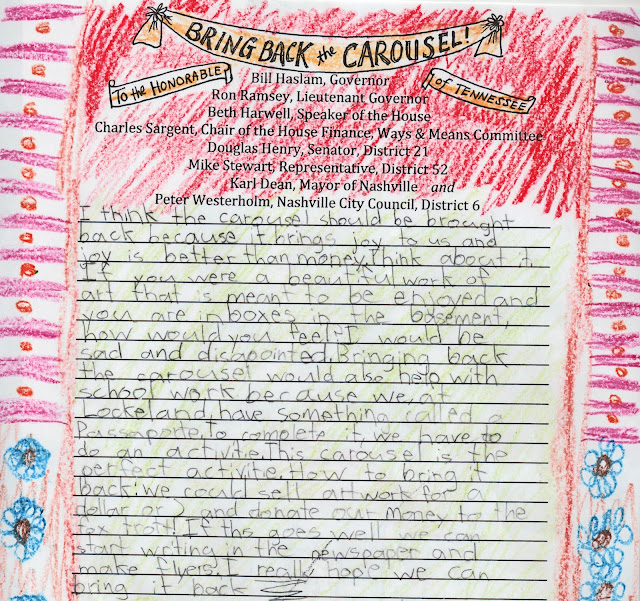 BRING BACK the CAROUSEL!
To the HONORABLE
of TENNESSEE
Bill Haslam, Governor
Ron Ramsey, Lieutenant Governor
Beth Harwell, Speaker of the House
Charles Sargent, Chair of the House Finance, Ways & Means Committee
Douglas Henry, Senator, District 21
Mike Stewart, Representative, District 52
Karl Dean, Mayor of Nashville and
Peter Westerholm, Nashville City Council, District 6
I think the carousel should be brought
back because it brings joy to us and
joy is better than money. Think about it.
If you were a beautiful work of
art that is meant to be enjoyed and
you are in boxes in the basement,
how would you feel? I would be
sad and disapointed. Bringing back
the carousel would also help with
school work because we, at
Lockeland, have something called a
Passaporte, to complete it, we have to
do an activitie. This carousel is the
perfect activitie. How to bring it
back: We could sell artwork for a
dollar or and donate our money to the
fox trott! If ths goes well we can
start writing in the newspaper and
make flyers. I really hople we can
bring it back